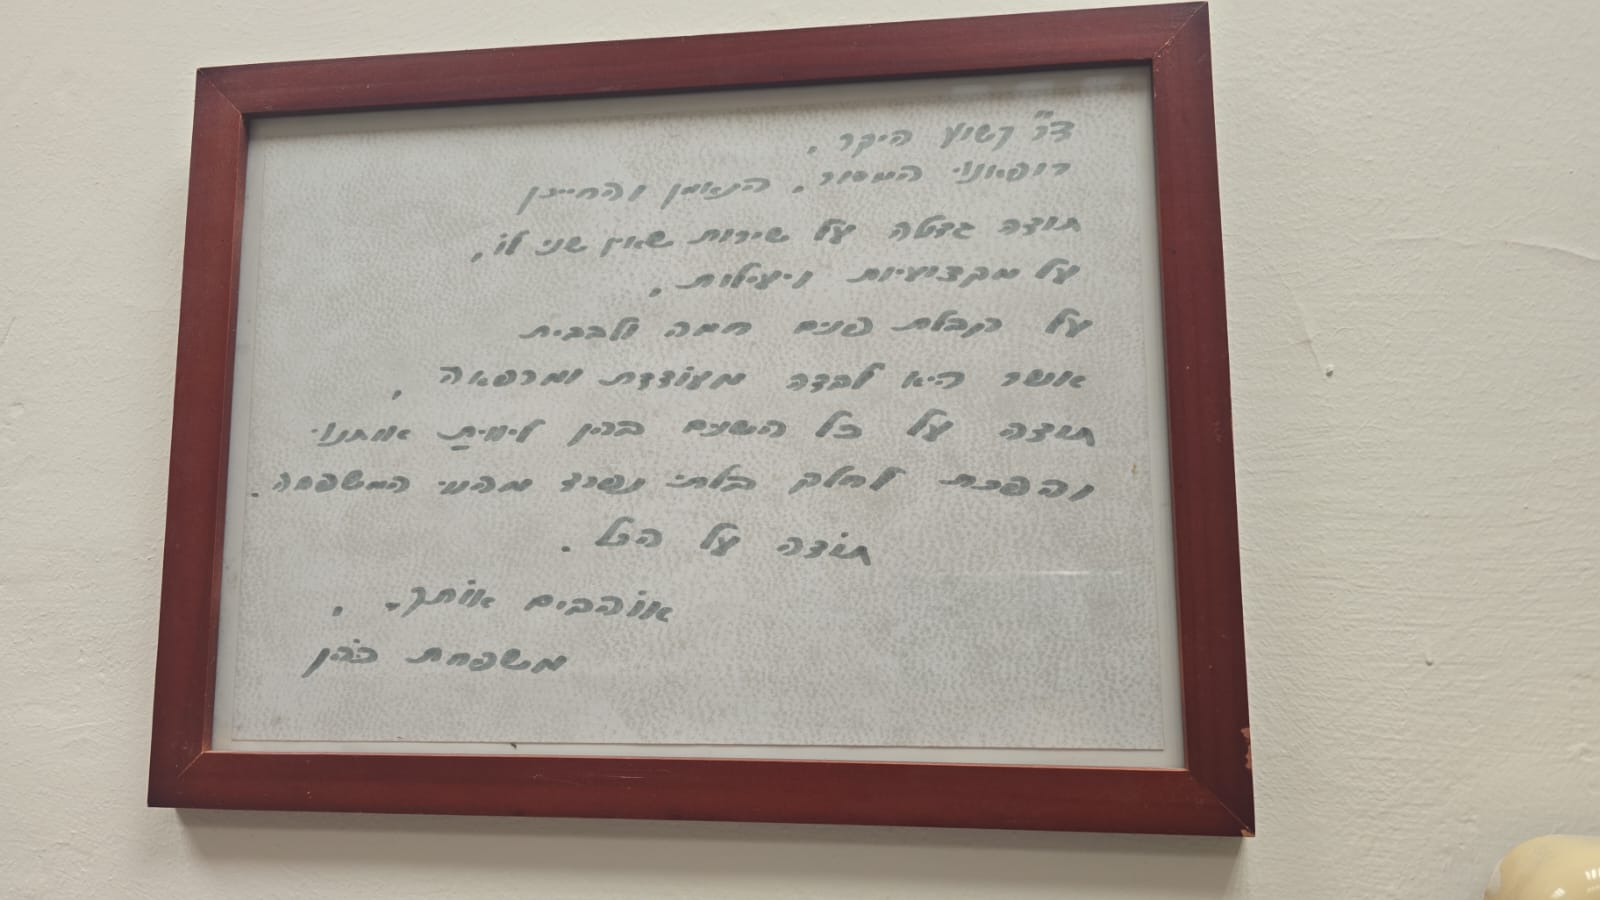 ד"ר קשוע היקר,
רופאנו המסור, הנאמן והחייכן
תודה גדולה על שירות שאין שני לו,
על מקצועיות ויעילות,
על קבלת פנים חמה ולבבית
אשר היא לבדה מעודדת ומרפאה,
תודה על כל השנים בהן ליווית אותנו
והפכת לחלק בלתי נפרד מהווי המשפחה.
תודה על הכל.
אוהבים אותך,
משפחת כהן